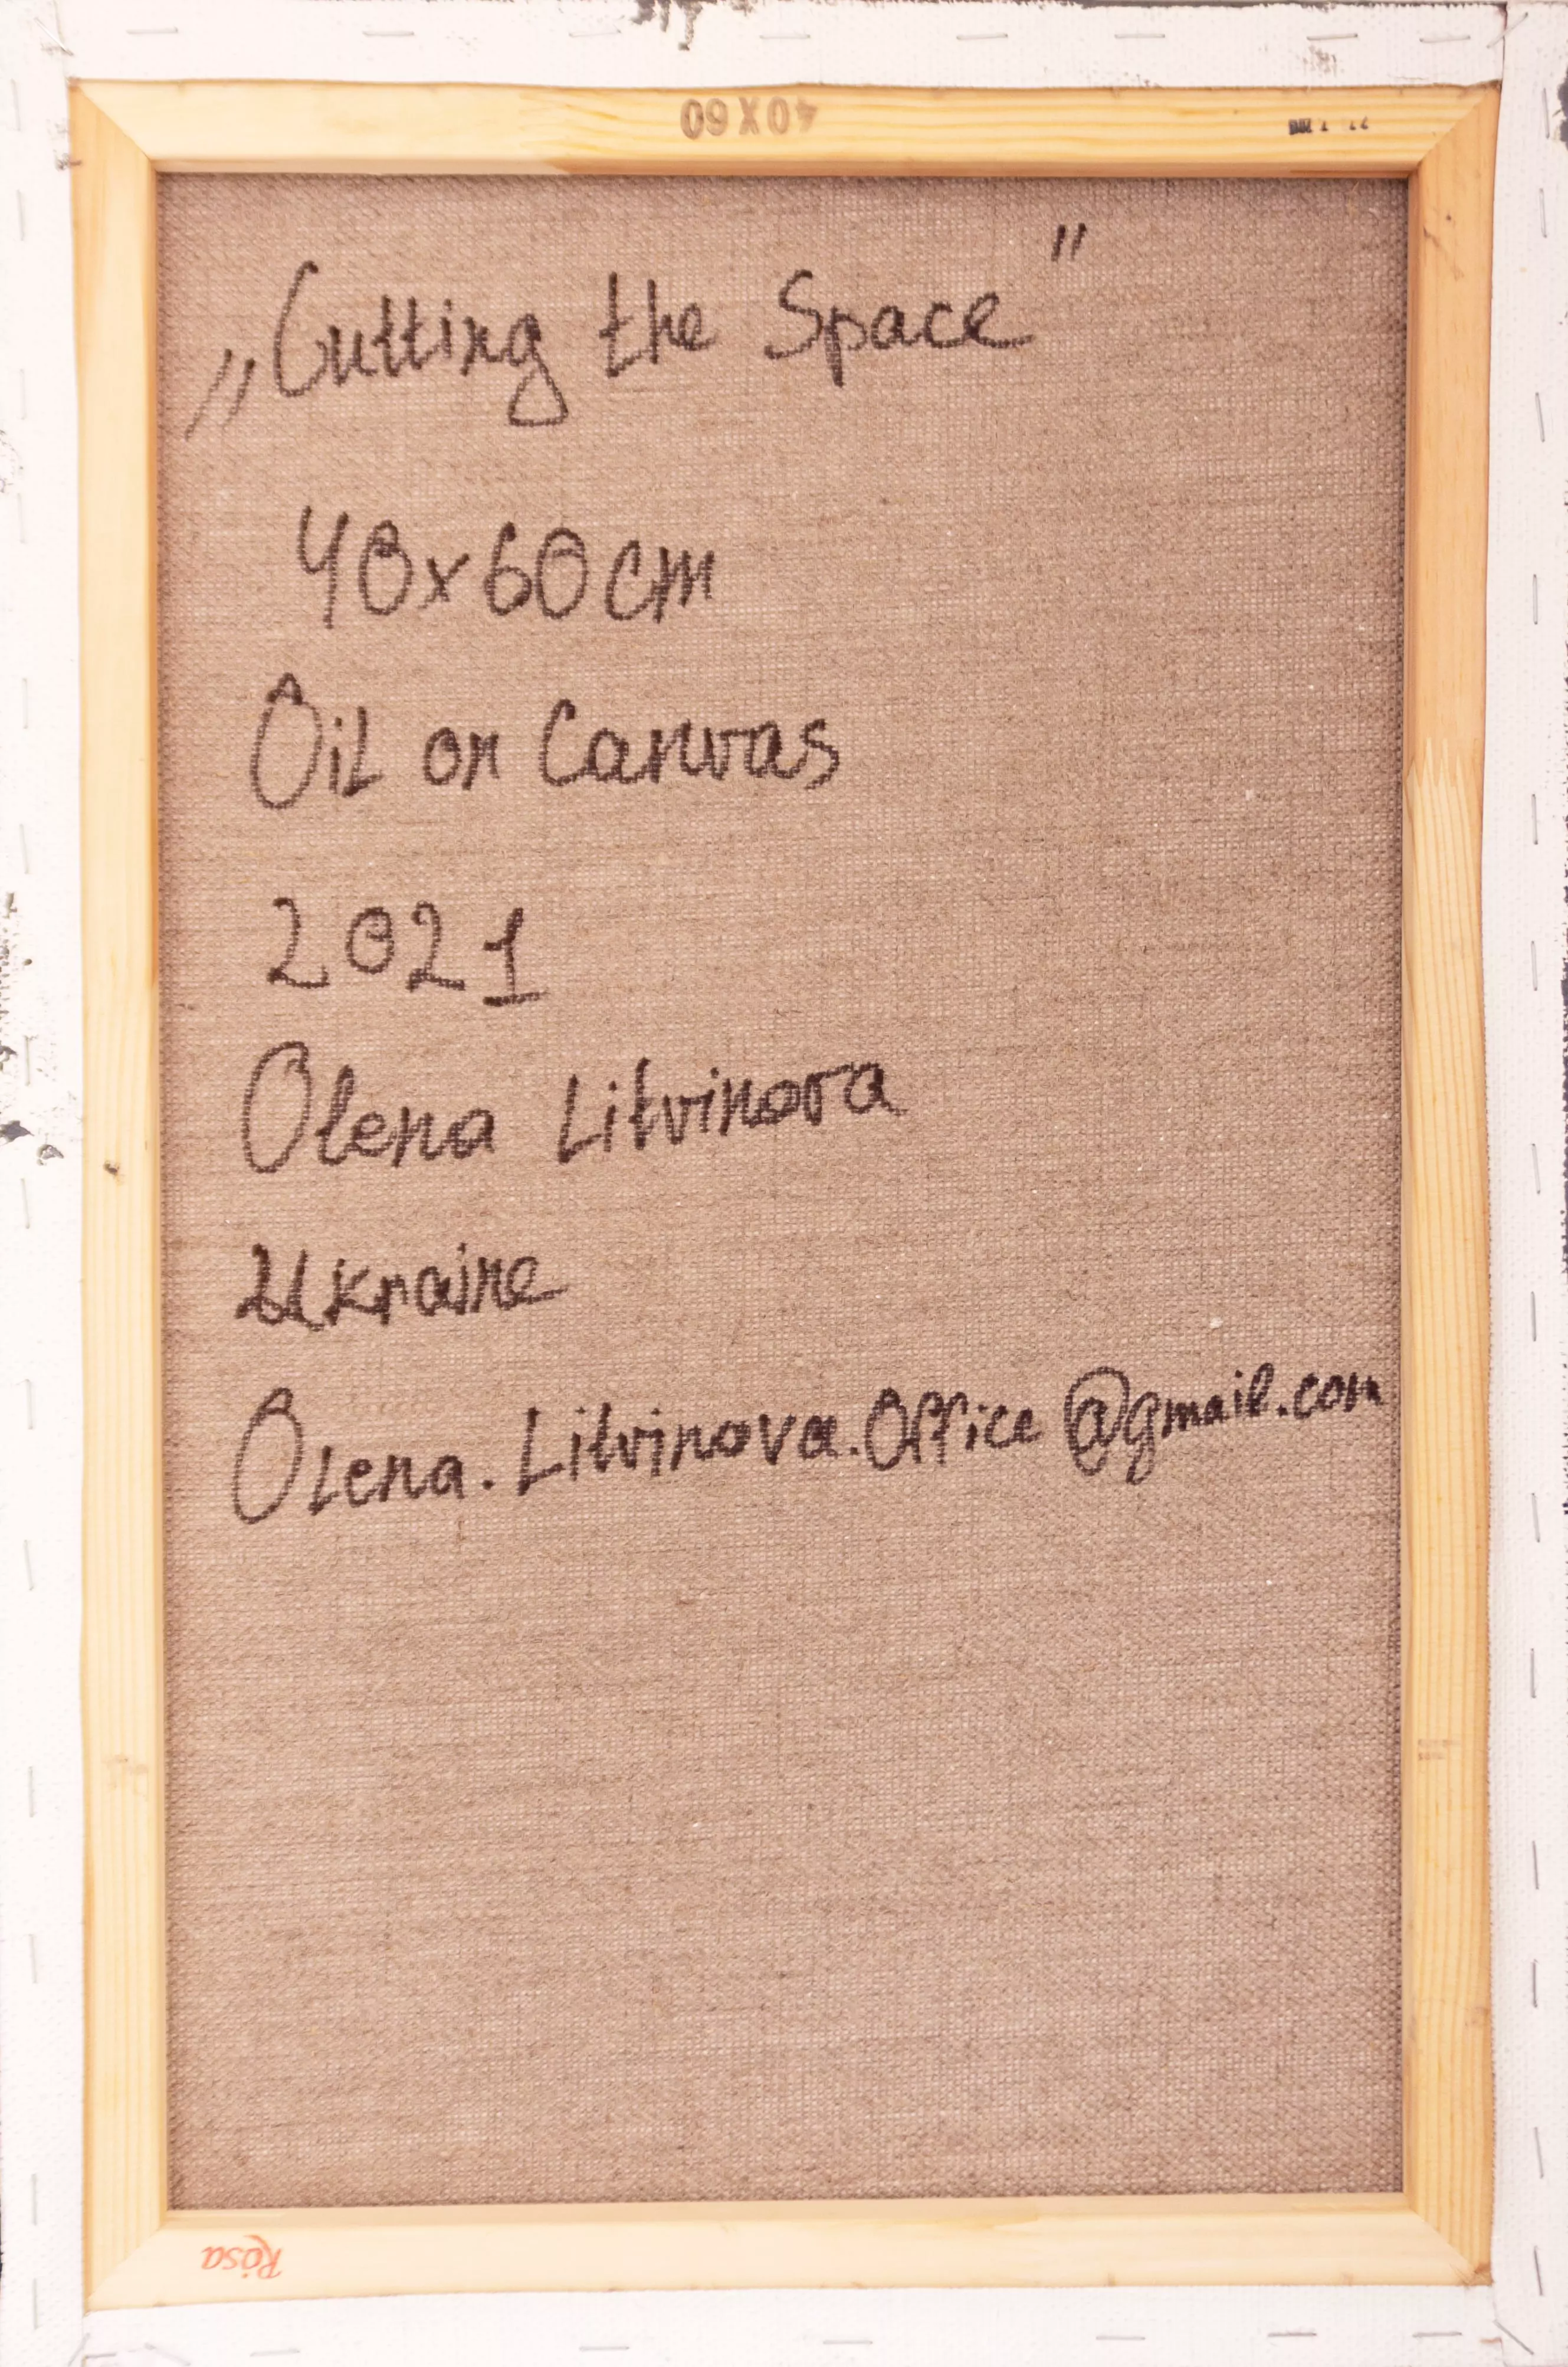 40X60
„Cutting the Space”
40x60cm
Oil on Canvas
2021
Olena Litvinova
Ukraine
Olena.Litvinova.Office@gmail.com
Rosa